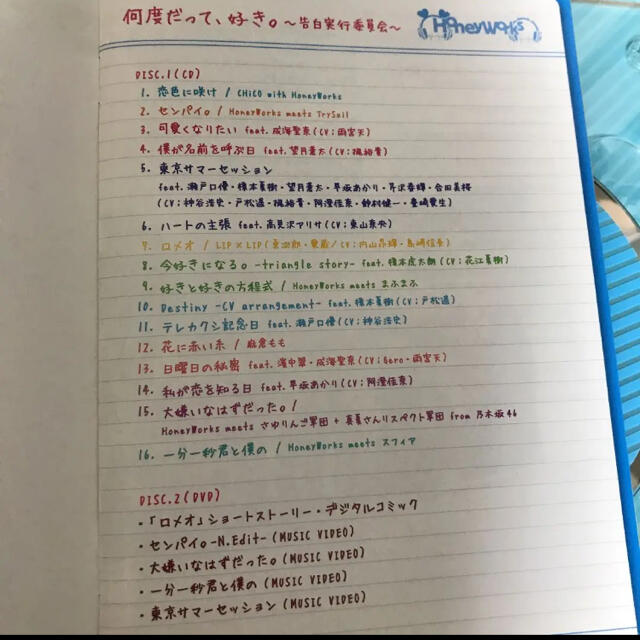 何度だって、好き。～告白実行委員会～ HoneyWorks
DISC.1(CD)
1. 恋色に咲け / CHiCO with HoneyWorks
2. センパイ。/ HoneyWorks meets TrySail
3. 可愛くなりたい feat.成海聖奈(CV:雨宮天)
4. 僕が名前を呼ぶ日 feat.望月蒼太(CV:梶裕貴)
5. 東京サマーセッション
feat.瀬戸口優・榎本夏樹・望月蒼太・早坂あかり・芹沢春輝・合田美桜
(CV:神谷浩史・戸松遥・梶裕貴・阿澄佳奈・鈴村健一・豊崎愛生)
6. ハートの主張 feat.高見沢アリサ(CV:東山奈央)
7. ロメオ / LIP×LIP(勇次郎・愛蔵/CV:内山昂輝・島﨑信長)
8. 今好きになる。-triangle story- feat.榎本虎太朗(CV:花江夏樹)
9. 好きと好きの方程式 / HoneyWorks meets まふまふ
10. Destiny -CV arrangement- feat.榎本夏樹(CV:戸松遥)
11. テレカクシ記念日 feat.瀬戸口優(CV:神谷浩史)
12. 花に赤い糸 / 麻倉もも
13. 日曜日の秘密 feat.濱中翠・成海聖奈(CV:Gero・雨宮天)
14. 私が恋を知る日 feat.早坂あかり(CV:阿澄佳奈)
15. 大嫌いなはずだった。/
HoneyWorks meets さゆりんご軍団 + 真夏さんリスペクト軍団 from 乃木坂46
16. 一分一秒君と僕の / HoneyWorks meets スフィア
DISC.2(DVD)
・「ロメオ」ショートストーリー・デジタルコミック
・センパイ。-N.Edit-(MUSIC VIDEO)
・大嫌いなはずだった。(MUSIC VIDEO)
・一分一秒君と僕の(MUSIC VIDEO)
・東京サマーセッション(MUSIC VIDEO)